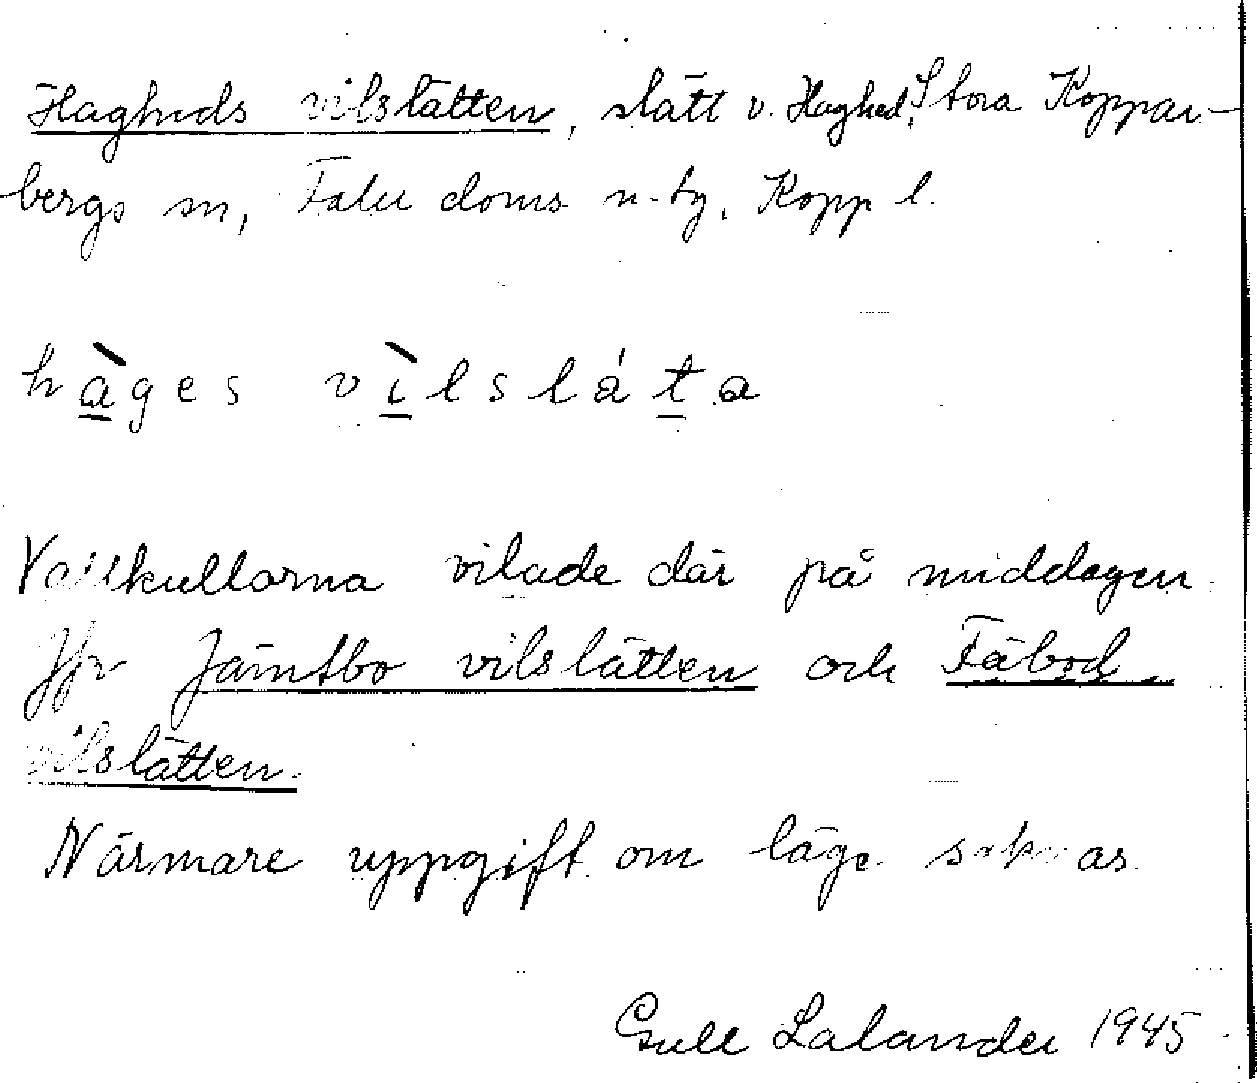 Hagheds vilslätten, slätt v. Haghed, Stora Koppar-
bergs sn, Falu doms. n. tg, Kopp l.
hàges vìlsláta
Vallkullorna vilade där på middagen.
Jfr Jämtbo vilslätten och Fäbod
vilslätten.
Närmare uppgift om läge saknas.
Gull Lalander 1945